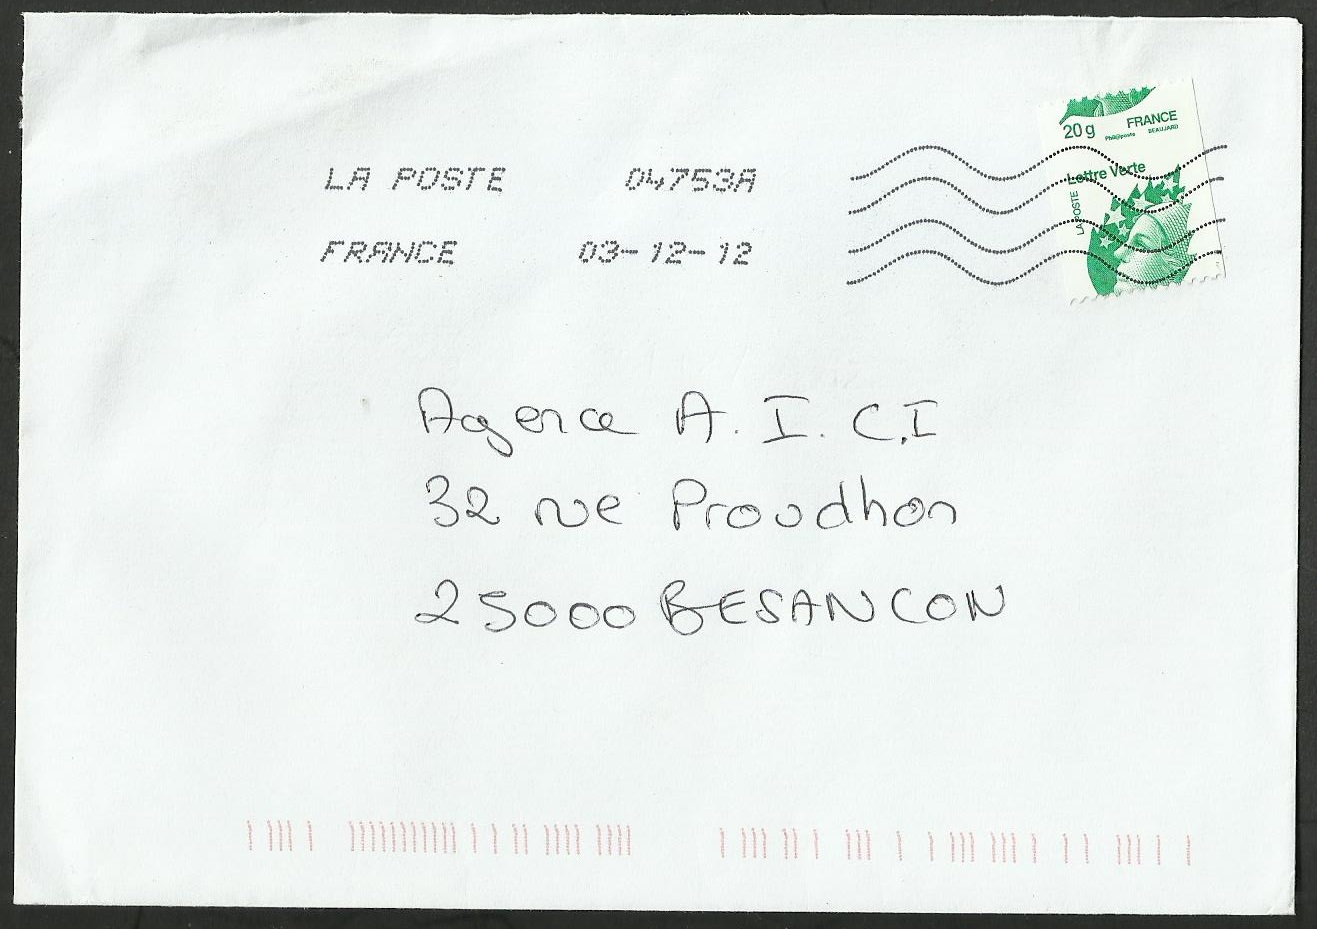 20 g FRANCE
Phil@poste BEAUJARD
Lettre Verte
LA POSTE
LA POSTE 04753A
FRANCE 03-12-12
Agence A. I. C.I
32 rue Proudhon
25000 BESANCON